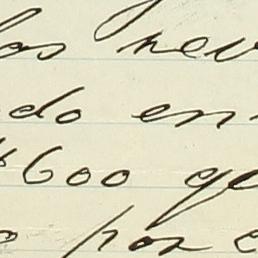 las nev
do en
$600 ge
o por e